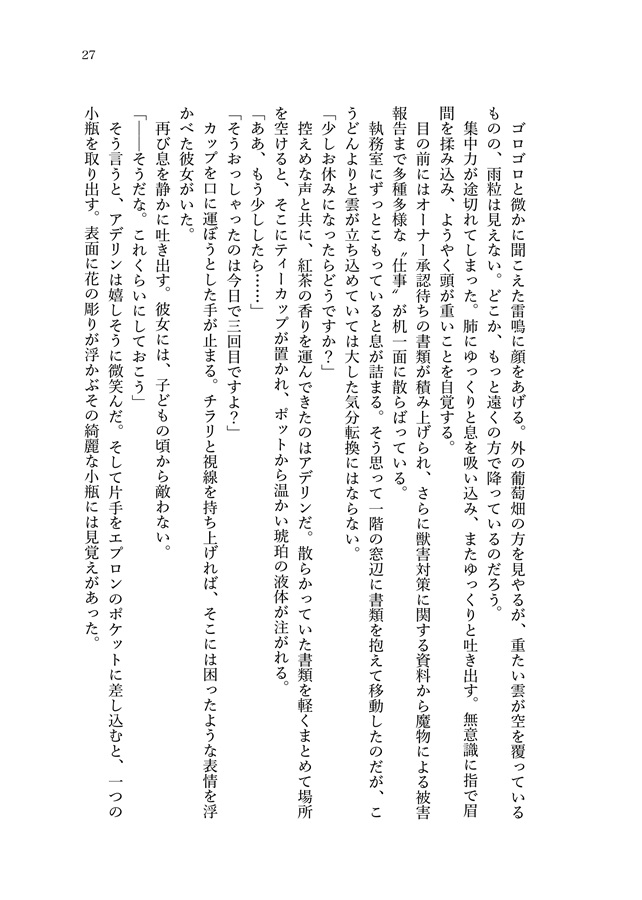 27
ゴロゴロと微かに聞こえた雷鳴に顔をあげる。外の葡萄畑の方を見やるが、重たい雲が空を覆っている
ものの、雨粒は見えない。どこか、もっと遠くの方で降っているのだろう。
集中力が途切れてしまった。肺にゆっくりと息を吸い込み、またゆっくりと吐き出す。無意識に指で眉
間を揉み込み、ようやく頭が重いことを自覚する。
目の前にはオーナー承認待ちの書類が積み上げられ、さらに獣害対策に関する資料から魔物による被害
報告まで多種多様な〝仕事〟が机一面に散らばっている。
執務室にずっとこもっていると息が詰まる。そう思って一階の窓辺に書類を抱えて移動したのだが、こ
うどんよりと雲が立ち込めていては大した気分転換にはならない。
「少しお休みになったらどうですか？」
控えめな声と共に、紅茶の香りを運んできたのはアデリンだ。散らかっていた書類を軽くまとめて場所
を空けると、そこにティーカップが置かれ、ポットから温かい琥珀の液体が注がれる。
「ああ、もう少ししたら……」
「そうおっしゃったのは今日で三回目ですよ？」
カップを口に運ぼうとした手が止まる。チラリと視線を持ち上げれば、そこには困ったような表情を浮
かべた彼女がいた。
再び息を静かに吐き出す。彼女には、子どもの頃から敵わない。
「――そうだな。これくらいにしておこう」
そう言うと、アデリンは嬉しそうに微笑んだ。そして片手をエプロンのポケットに差し込むと、一つの
小瓶を取り出す。表面に花の彫りが浮かぶその綺麗な小瓶には見覚えがあった。